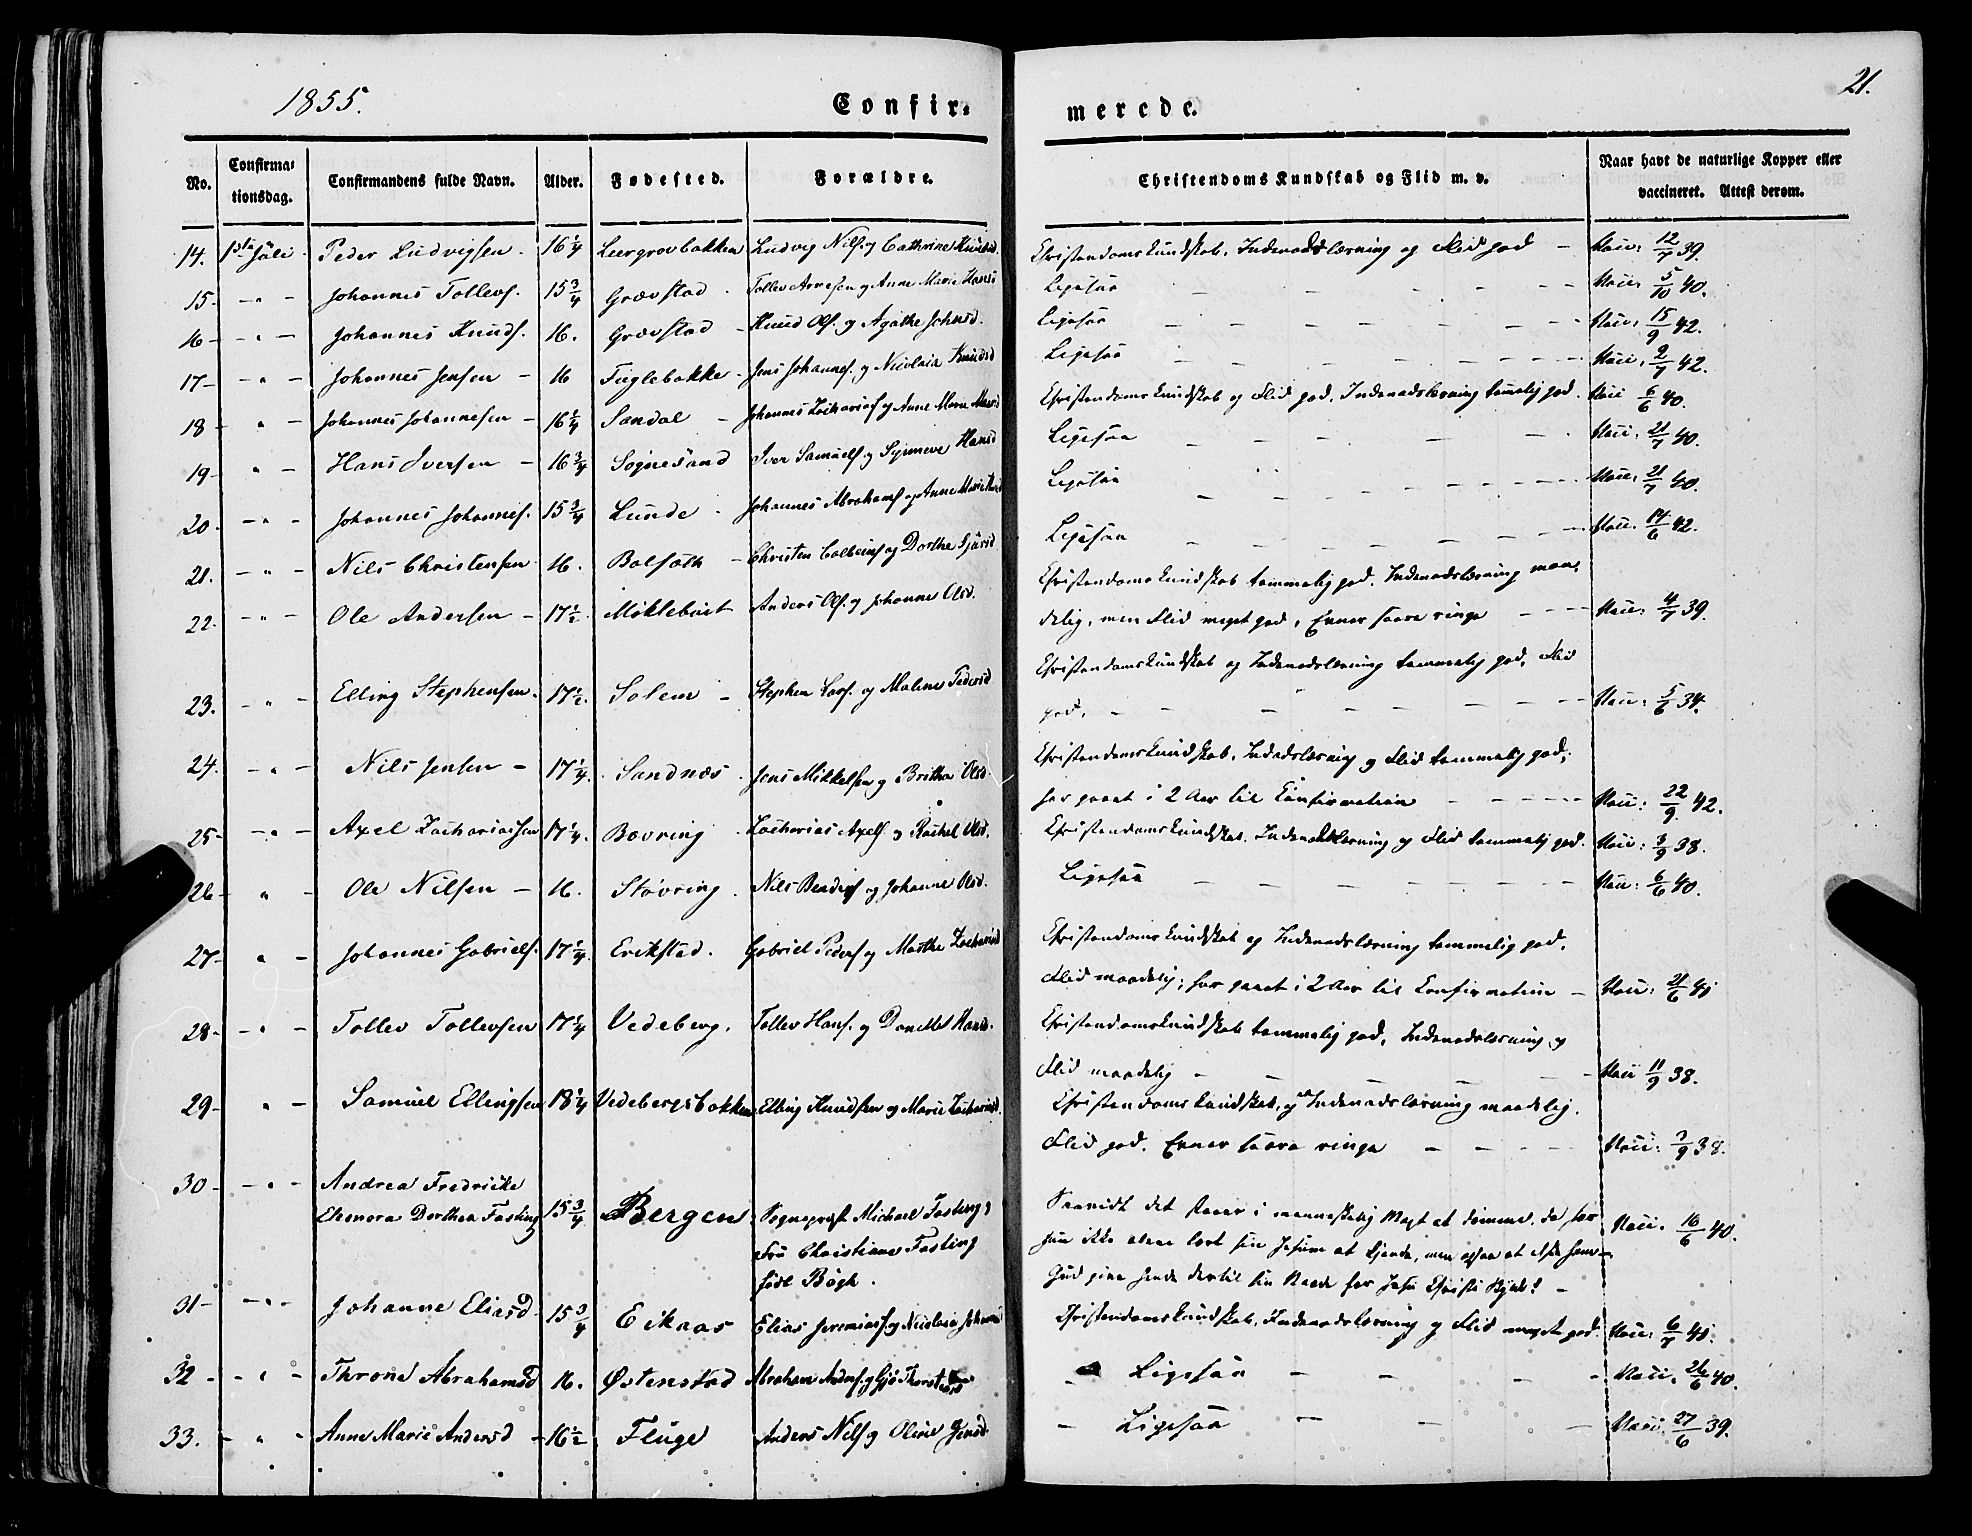 1855. Confir= merede. 21.
No. Confirma= tionsdag. Confirmandens fulde Navn. Alder. Fødested. Forældre. Christendoms Kundskab og Flid m. v. Naar havt de naturlige Kopper eller vaccineret. Attest derom.
14. 1ste Juli Peder Ludvigsen 16 1/4 Leergrovbakken Ludvig Nils. og Cathrine Knudsd. Christendomskundskab, Indenadslæsning og Flid god — Vacc: 12/7 39.
15 — " — Johannes Tollevs. 15 3/4 Grævstad Tollev Arnesen og Anne Marie Hansd Ligesaa — Vacc: 5/10 40.
16 — " — Johannes Knuds. 16. Grævstad — Knud Ols. og Agathe Johnsd. Ligesaa — Vacc: 15/9 42.
17 — " — Johannes Jensen — 16 Fuglebakke Jens Johannes. og Nicolaia Knudsd Ligesaa — Vacc: 2/7 42.
18 — " — Johannes Johannesen — 16 1/4 Sandal — Johannes Zacharias og Anne Marie Christendomskundskab og Flid god, Indenadslæsning temmelig god. Vacc 6/6 40.
19 — " — Hans Iversen — 16 3/4 Sognesand Iver Samuels og Synneve Hansd Ligesaa — Vacc: 21/7 40.
20 — " — Johannes Johannes. 15 3/4 Lunde Johannes Abrahams og Anne Marie Ligesaa — Vacc: 21/7 40.
21. — " — Nils Christensen 16. Bolsæth — Christen og Dorthe Ligesaa — Vacc: 14/6 42.
22. — " — Ole Andersen — 17 1/2 Møklebust Anders Ols. og Johanne Olsd. Christendomskundskab temmelig god, Indenadslæsning maa=
delig, men Flid meget god, Evner saare ringe — Vacc: 4/7 39.
23. — " Elling Stephensen. 17 1/2. Solem — Stephen Lars. og Maline Pedersd Christendomskundskab og Indenadslæsning temmelig god, Flid
god. — Vacc: 5/6 34.
24. — " — Nils Jensen — 17 1/4. Sandnæs Jens Mikkelsen og Britha Olsd. Christendomskundskab, Indadslæsning og Flid temmelig god;
har gaaet i 2 Aar til Confirmation — Vacc: 22/9 42.
25 — " — Axel Zachariassen 17 1/4. Bøvring Zacharias Axels. og Rachel Olsd. Christendomskundskab, Indenadslæsning og Flid temmelig god. Vacc: 3/9 38.
26 — " — Ole Nilsen — 16. Støvring Nils og Johanne Olsd. Ligesaa — Vacc: 6/6 40.
27 — " — Johannes Gabriels. 17 1/4 Erikstad. Gabriel Peders og Marthe Zachariasd Christendomskundskab og Indenadslæsning temmelig god,
Flid maadelig; har gaaet i 2 Aar til Confirmation — Vacc: 21/6 41
28 — " — Tollev Tollevsen 17 1/4 Vedeberg. Tollev Hans. og Hansd. Christendomskundskab temmelig god, Indenadslæsning og
Flid maadelig — Vacc 11/9 38.
29 — " — Samuel Ellingsen 18 1/4 Vedebergsbakken Elling Knudsen og Marie Zachariasd. Christendomskundskab, og Indenadslæsning maadelig.
Flid god. Evner saare ringe — Vacc: 7/9 38.
30 — " — Andrea Fredrikke
Elenora Dorthea Fasting 15 3/4 Bergen Sognepræst Michael Fasting og
Fru Christiane Fasting
født Bøgh. Saavidt det staaer i menneskelig Magt at dømme, da har
hun ikke alene lært sin Jesum at kjende, men ogsaa at elske ham
Gud give hende dertil sin Naade for Jesu Christi Skyld! — Vacc: 16/6 40.
31 — " — Johanne Eliasd 15 3/4 Eikaas Elias Jeremias og Nicolaia Christendomskundskab, Indenadslæsning og Flid meget god. Vacc: 6/7 41.
32 — " — Throne Abrahamsd 16. Østenstad Abraham Anders. og Ligesaa — Vacc: 26/6 40.
33. — " — Anne Marie Andersd — 16 1/2 Fluge Anders Nils og Oline Jensd. — Ligesaa — Vacc: 27/6 39.